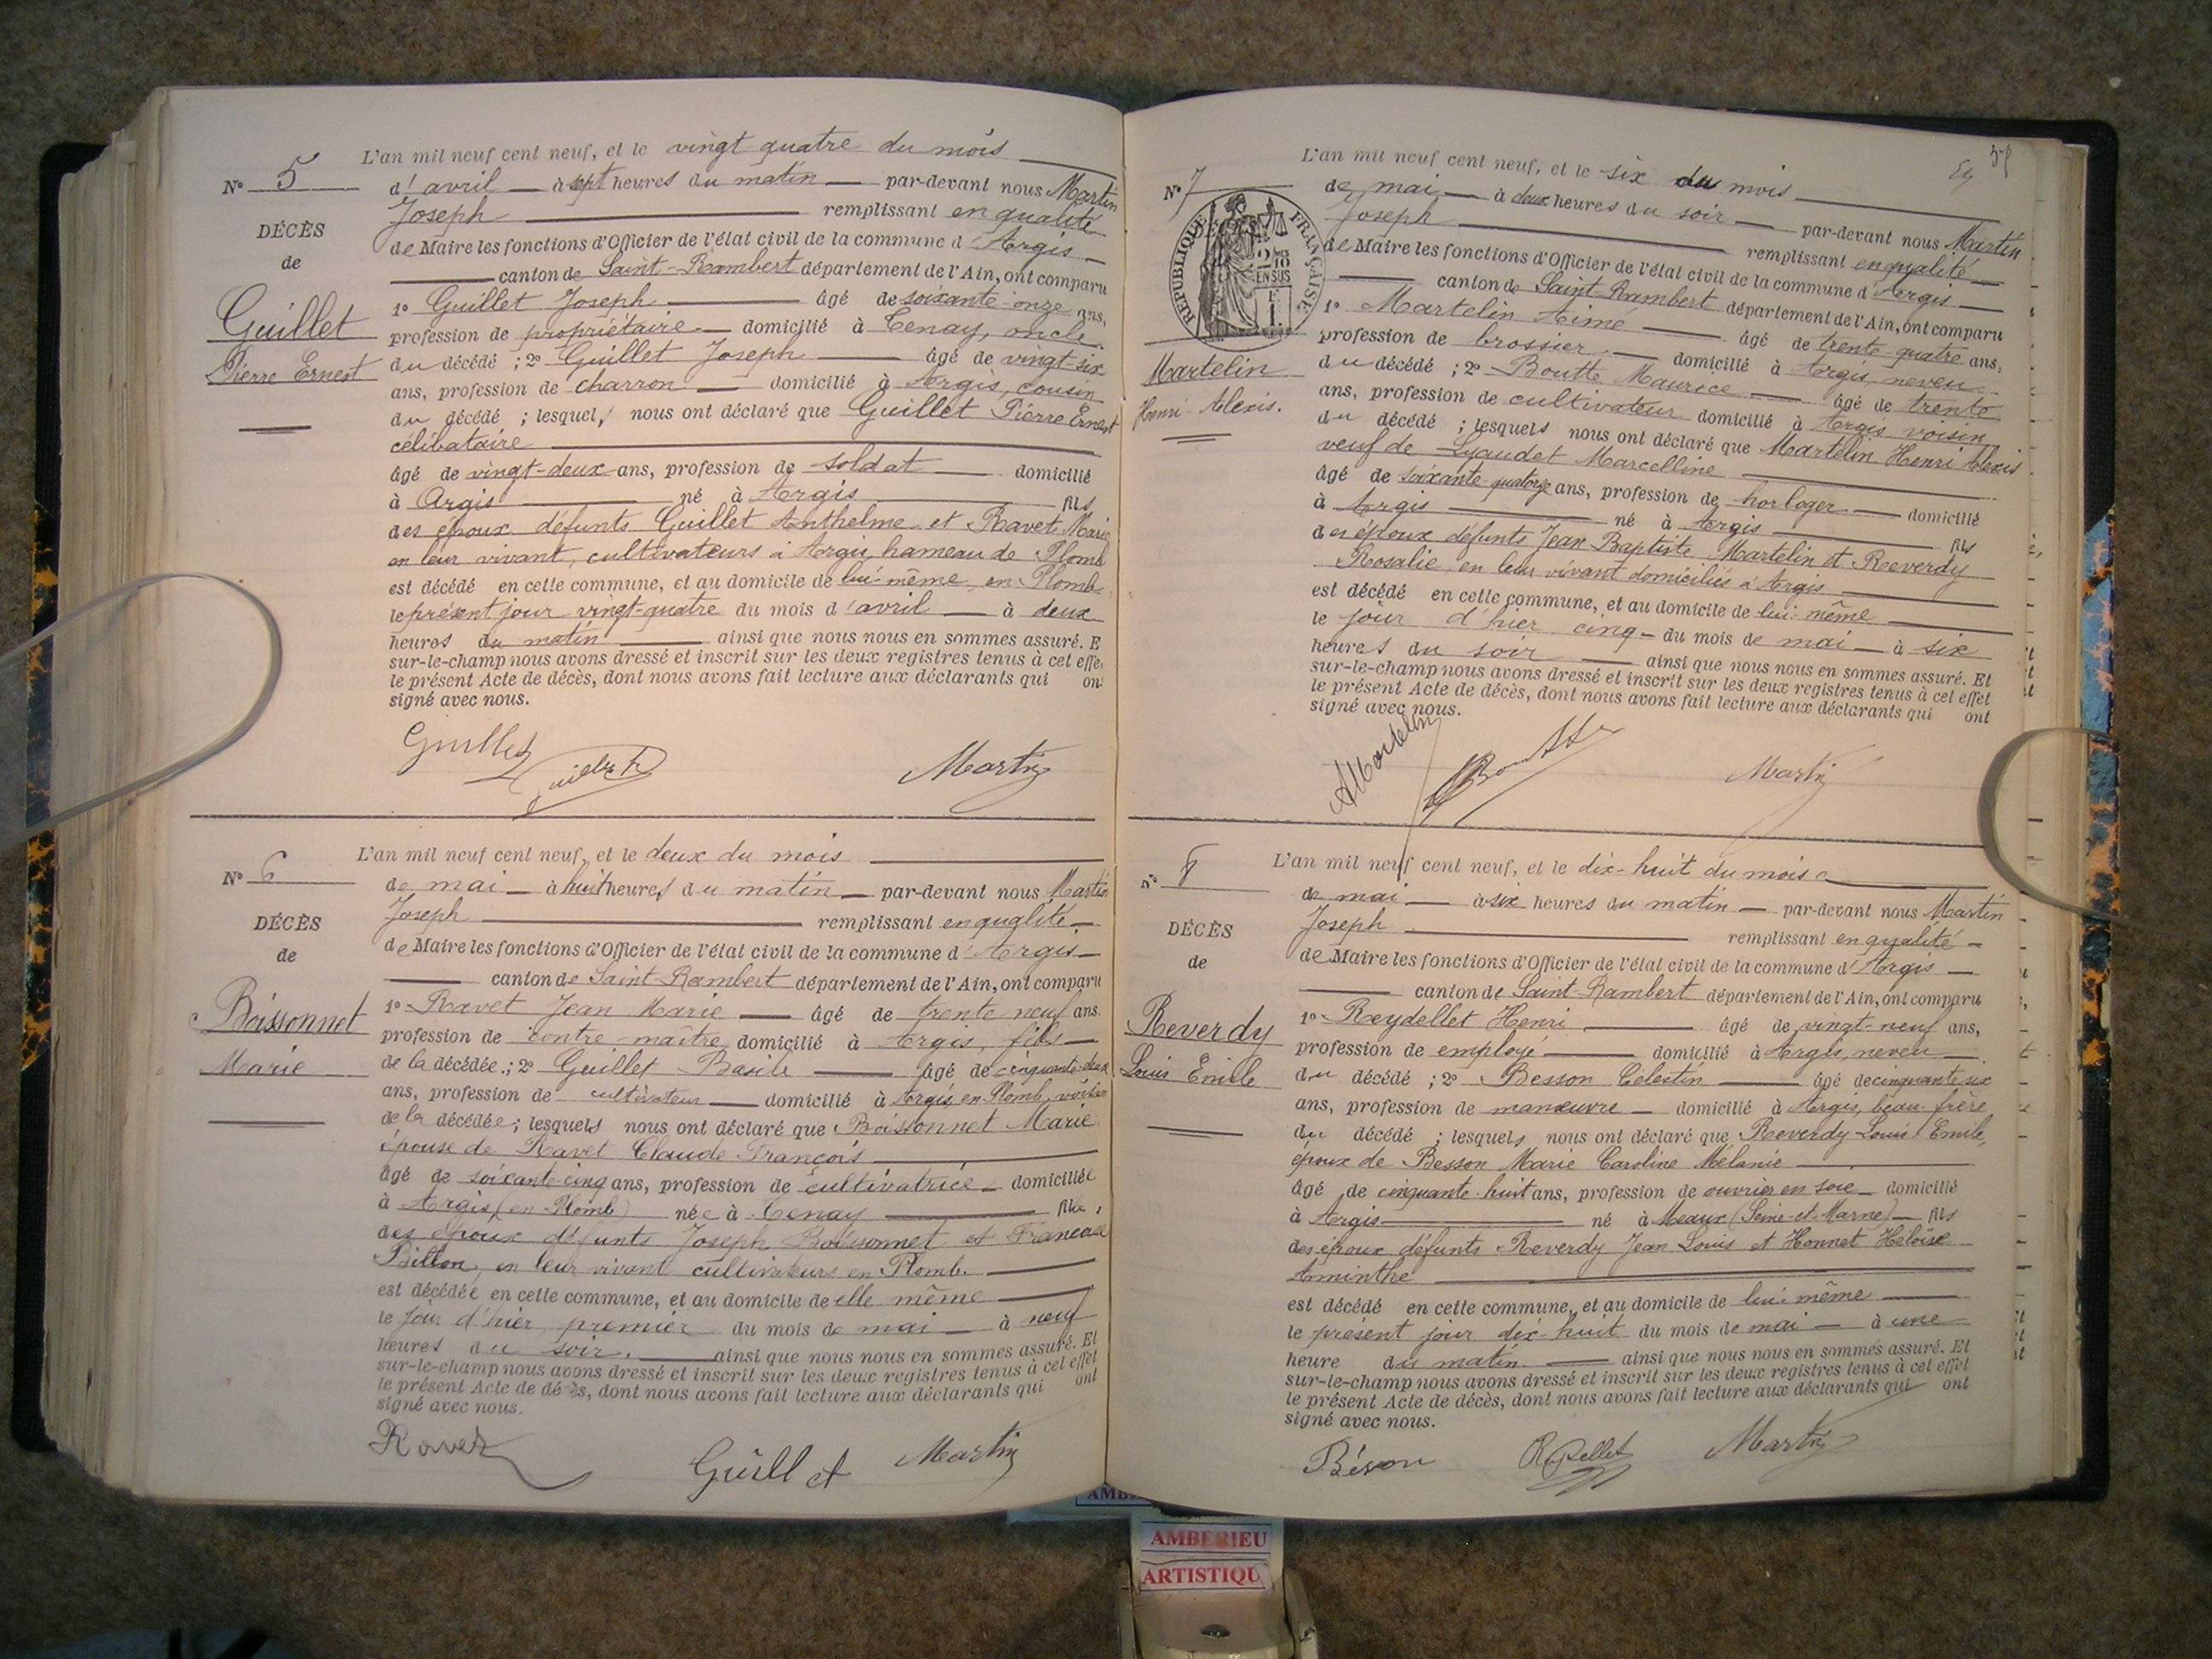 L'an mil neuf cent neuf, et le vingt-quatre du mois
N° 5
d'avril à sept heures du matin par-devant nous Martin
Joseph remplissant en qualité
DÉCÈS
de Maire les fonctions d'Officier de l'état civil de la commune d'Argis
de
canton de Saint-Rambert département de l'Ain, ont comparu
1° Guillet Joseph âgé de soixante-onze ans,
Guillet
profession de propriétaire domicilié à Tenay, oncle
Pierre Ernest
du décédé ; 2° Guillet Joseph âgé de vingt-six
ans, profession de charron domicilié à Argis, cousin
du décédé ; lesquels nous ont déclaré que Guillet Pierre Ernest
célibataire
âgé de vingt-deux ans, profession de soldat domicilié
à Argis né à Argis fils
des époux défunts Guillet Anthelme et Ravet Marie
en leur vivant, cultivateurs à Argis, hameau de Plomb
est décédé en cette commune, et au domicile de lui-même, en Plomb
le présent jour vingt-quatre du mois d'avril à deux
heures du matin ainsi que nous nous en sommes assuré. E
sur-le-champ nous avons dressé et inscrit sur les deux registres tenus à cet effe
le présent Acte de décès, dont nous avons fait lecture aux déclarants qui on
signé avec nous.
Guillet Martin
L'an mil neuf cent neuf, et le deux du mois
N° 6
de mai à huit heures du matin par-devant nous Martin
Joseph remplissant en qualité
DÉCÈS
de Maire les fonctions d'Officier de l'état civil de la commune d'Argis
de
canton de Saint-Rambert département de l'Ain, ont comparu
Boissonnet
1° Ravet Jean Marie âgé de trente-neuf ans
profession de contre-maître domicilié à Argis, fils
Marie
de la décédée ; 2° Guillet Basile âgé de cinquante-deux
ans, profession de cultivateur domicilié à Argis, en Plomb, voisin
de la décédée ; lesquels nous ont déclaré que Boissonnet Marie
épouse de Ravet Claude François
âgé de soixante-cinq ans, profession de cultivatrice domiciliée
à Argis (en Plomb) née à Tenay fille
des époux défunts Joseph Boissonnet et
Billon, en leur vivant cultivateurs en Plomb
est décédée en cette commune, et au domicile de elle même
le jour d'hier, premier du mois de mai à neuf
heures du soir ainsi que nous nous en sommes assuré. Et
sur-le-champ nous avons dressé et inscrit sur les deux registres tenus à cet effet
le présent Acte de décès, dont nous avons fait lecture aux déclarants qui ont
signé avec nous.
Ravet Guillet Martin
L'an mil neuf cent neuf, et le six du mois
N° 7
de mai à deux heures du soir par-devant nous Martin
Joseph remplissant en qualité
RÉPUBLIQUE FRANÇAISE
2/10 EN SUS
F. 1.
de Maire les fonctions d'Officier de l'état civil de la commune d'Argis
canton de Saint-Rambert département de l'Ain, ont comparu
1° Martelin Aimé âgé de trente-quatre ans,
profession de brossier domicilié à Argis, neveu
Martelin
du décédé ; 2° Boutte Maurice âgé de trente
Henri-Alexis.
ans, profession de cultivateur domicilié à Argis voisin
du décédé ; lesquels nous ont déclaré que Martelin Henri Alexis
veuf de Lyaudet Marcelline
âgé de soixante-quatorze ans, profession de horloger domicilié
à Argis né à Argis fils
des époux défunts Jean Baptiste Martelin et Reverdy
Rosalie, en leur vivant domiciliés à Argis
est décédé en cette commune, et au domicile de lui-même
le jour d'hier cinq du mois de mai à six
heures du soir ainsi que nous nous en sommes assuré. Et
sur-le-champ nous avons dressé et inscrit sur les deux registres tenus à cet effet
le présent Acte de décès, dont nous avons fait lecture aux déclarants qui ont
signé avec nous.
AMartelin Boutte Martin
L'an mil neuf cent neuf, et le dix-huit du mois
N° 8
de mai à six heures du matin par-devant nous Martin
Joseph remplissant en qualité
DÉCÈS
de Maire les fonctions d'Officier de l'état civil de la commune d'Argis
de
canton de Saint-Rambert département de l'Ain, ont comparu
Reverdy
1° Reydellet Henri âgé de vingt-neuf ans,
profession de employé domicilié à Argis, neveu
Louis Emile
du décédé ; 2° Besson Célestin âgé de cinquante six
ans, profession de manœuvre domicilié à Argis, beau-frère
du décédé ; lesquels nous ont déclaré que Reverdy Louis Emile,
époux de Besson Marie Caroline Mélanie
âgé de cinquante-huit ans, profession de ouvrier en soie domicilié
à Argis né à Meaux (Seine-et-Marne) fils
des époux défunts Reverdy Jean Louis et Honnet Héloïse
Aminthe
est décédé en cette commune, et au domicile de lui-même
le présent jour dix-huit du mois de mai à une
heure du matin ainsi que nous nous en sommes assuré. Et
sur-le-champ nous avons dressé et inscrit sur les deux registres tenus à cet effet
le présent Acte de décès, dont nous avons fait lecture aux déclarants qui ont
signé avec nous.
Béson Martin
AMBERIEU
ARTISTIQU